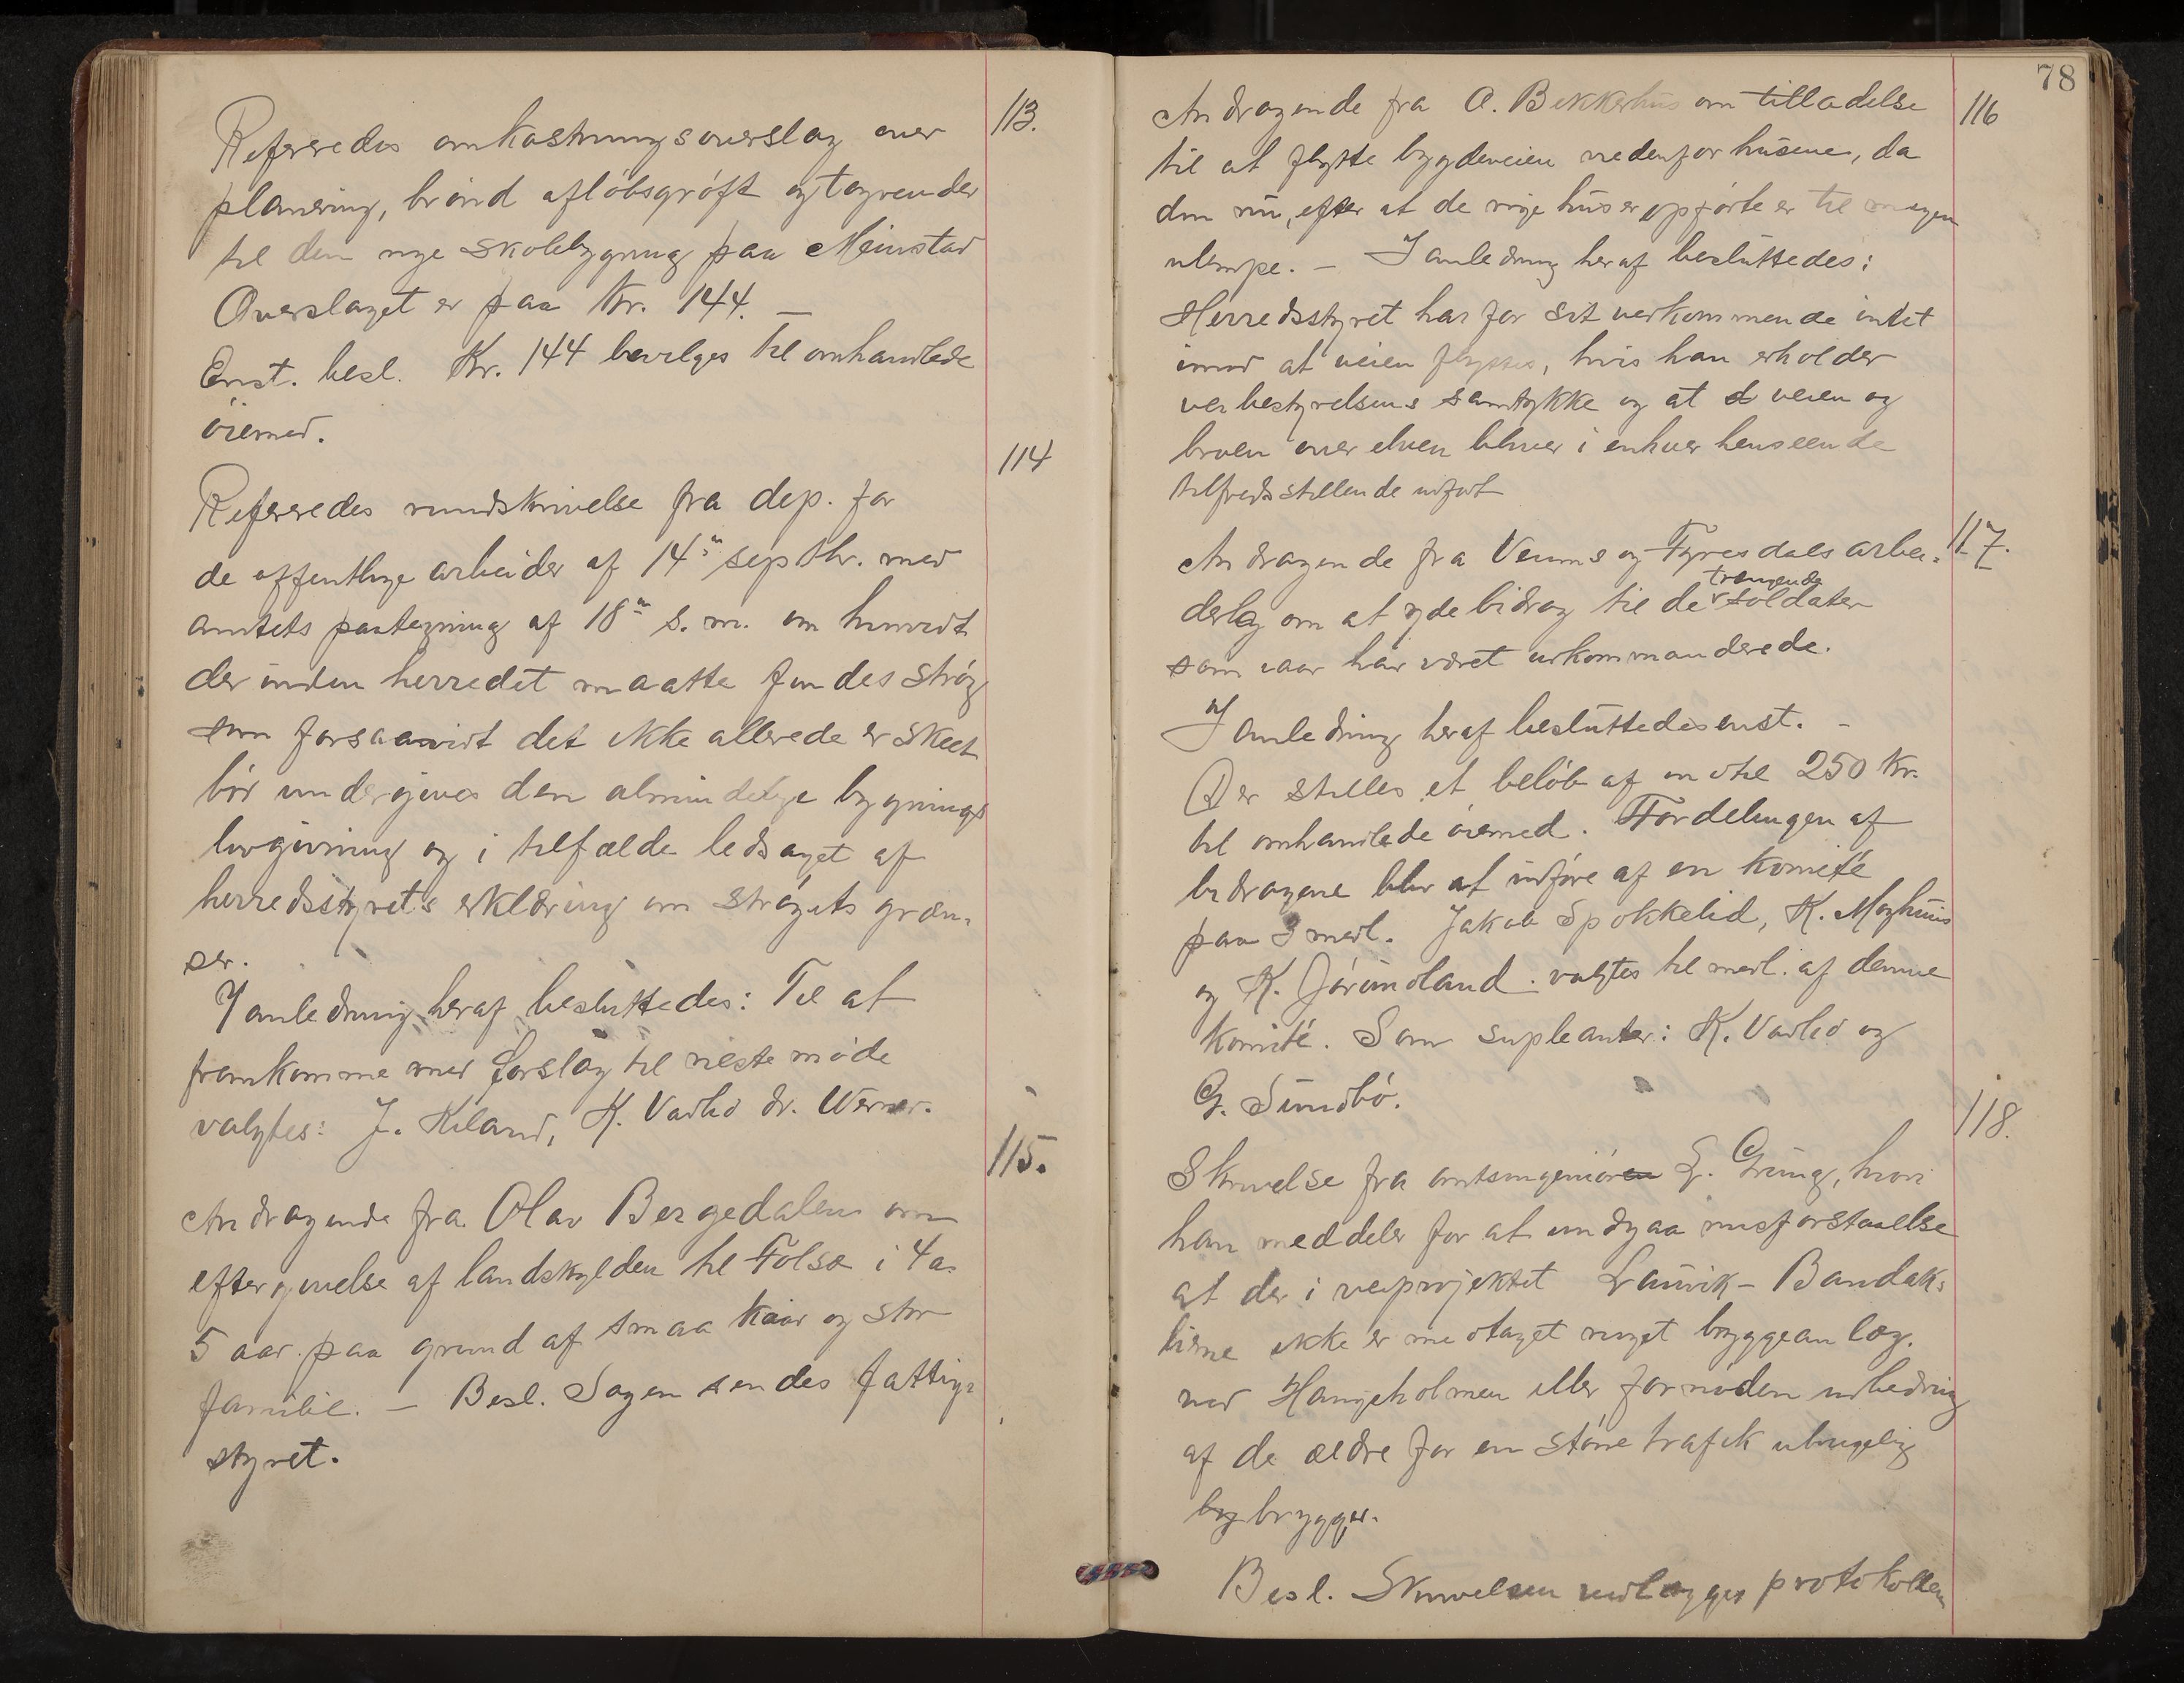 113.
Refereredes omkostningsoverslag over
planering, brønd afløbsgrøft og tagrender
til den nye skolebygning paa Meinstad
Overslaget er paa Kr. 144. –
Enst. besl. Kr. 144 bevilges til omhandlede
øiemed.
114
Refereredes rundskrivelse fra dep. for
de offentlige arbeider af 14de septbr. med
amtets paategning af 18de s. m. om hvorvidt
der inden herredet maatte findes strøg
som forsaavidt det ikke allerede er skeet
bør undergives den almindelige bygnings
lovgivning og i tilfælde ledsaget af
herredsstyrets erklæring om strøgets græn-
ser.
I anledning heraf besluttedes: Til at
fremkomme med forslag til neste møde
valgtes: J. Kiland, K. Vadlid dr. Werner.
115.
Andragende fra Olav Bergedalen om
eftergivelse af landskylden til Folso i 4 a.
5 aar paa grund af smaa kaar og stor
familie. – Besl. Sagen sendes fattig-
styret.
78
116
Andragende fra O. Bekkerhus om tilladelse
til at flytte bygdeveien nedenfor husene, da
den nu, efter at de nye hus er opførte er til megen
ulempe. – I anledning heraf besluttedes:
Herredsstyret har for sit vedkommende intet
imod at veien flyttes, hvis han erholder
veibestyrelsens samtykke og at veien og
broen over elven bliver i enhver henseende
tilfredsstillende udført
117.
Andragende fra Veums og Fyresdals arbei-
derlag om at yde bidrag til de trængende soldater
som iaar har været udkommanderede.
I anledning heraf besluttedes enst. –
Der stilles et beløb af indtil 250 Kr.
til omhandlede øiemed. Fordelingen af
bidragene blir at udføre af en komité
paa 3 medl. Jakob Spokkelid, K. Moghus
og K. Jørundland valgtes til medl. af denne
komité. Som supleanter: K. Vadlid og
G. Sundbø.
118.
Skrivelse fra amtsingeniøren L. Grung, hvori
han meddeler for at undgaa misforstaaelse
at der i veiprojektet Lauvik – Bandaks-
lierne ikke er medtaget noget bryggeanlæg
ved Hangeholmen eller fornøden udbedring
af de ældre for en større trafik ubrugelig
bryg brygger.
Besl. Skrivelsen vedlægges protokollen